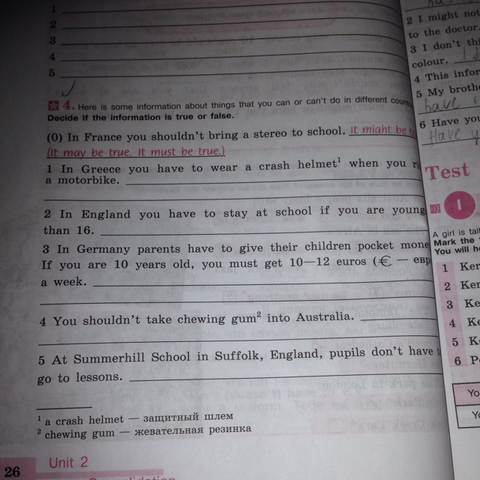 1
2
3
4
5
4. Here is some information about things that you can or can't do in different
Decide if the information is true or false.
(0) In France you shouldn't bring a stereo to school. It might be
(It may be true. It must be true.)
1 In Greece you have to wear a crash helmet¹ when you
a motorbike.
2 In England you have to stay at school if you are
than 16.
3 In Germany parents have to give their children pocket
If you are 10 years old, you must get 10—12 euros (€ —
a week.
4 You shouldn't take chewing gum² into Australia.
5 At Summerhill School in Suffolk, England, pupils don't have
go to lessons.
¹ a crash helmet — защитный шлем
² chewing gum — жевательная резинка
26
Unit 2
Consolidation
2 I might not
to the doctor.
3 I don't
colour.
4 This
5 My
have
6 Have
Have
Test
I
A girl is
Mark the
You will
1
2
3
4
5
6